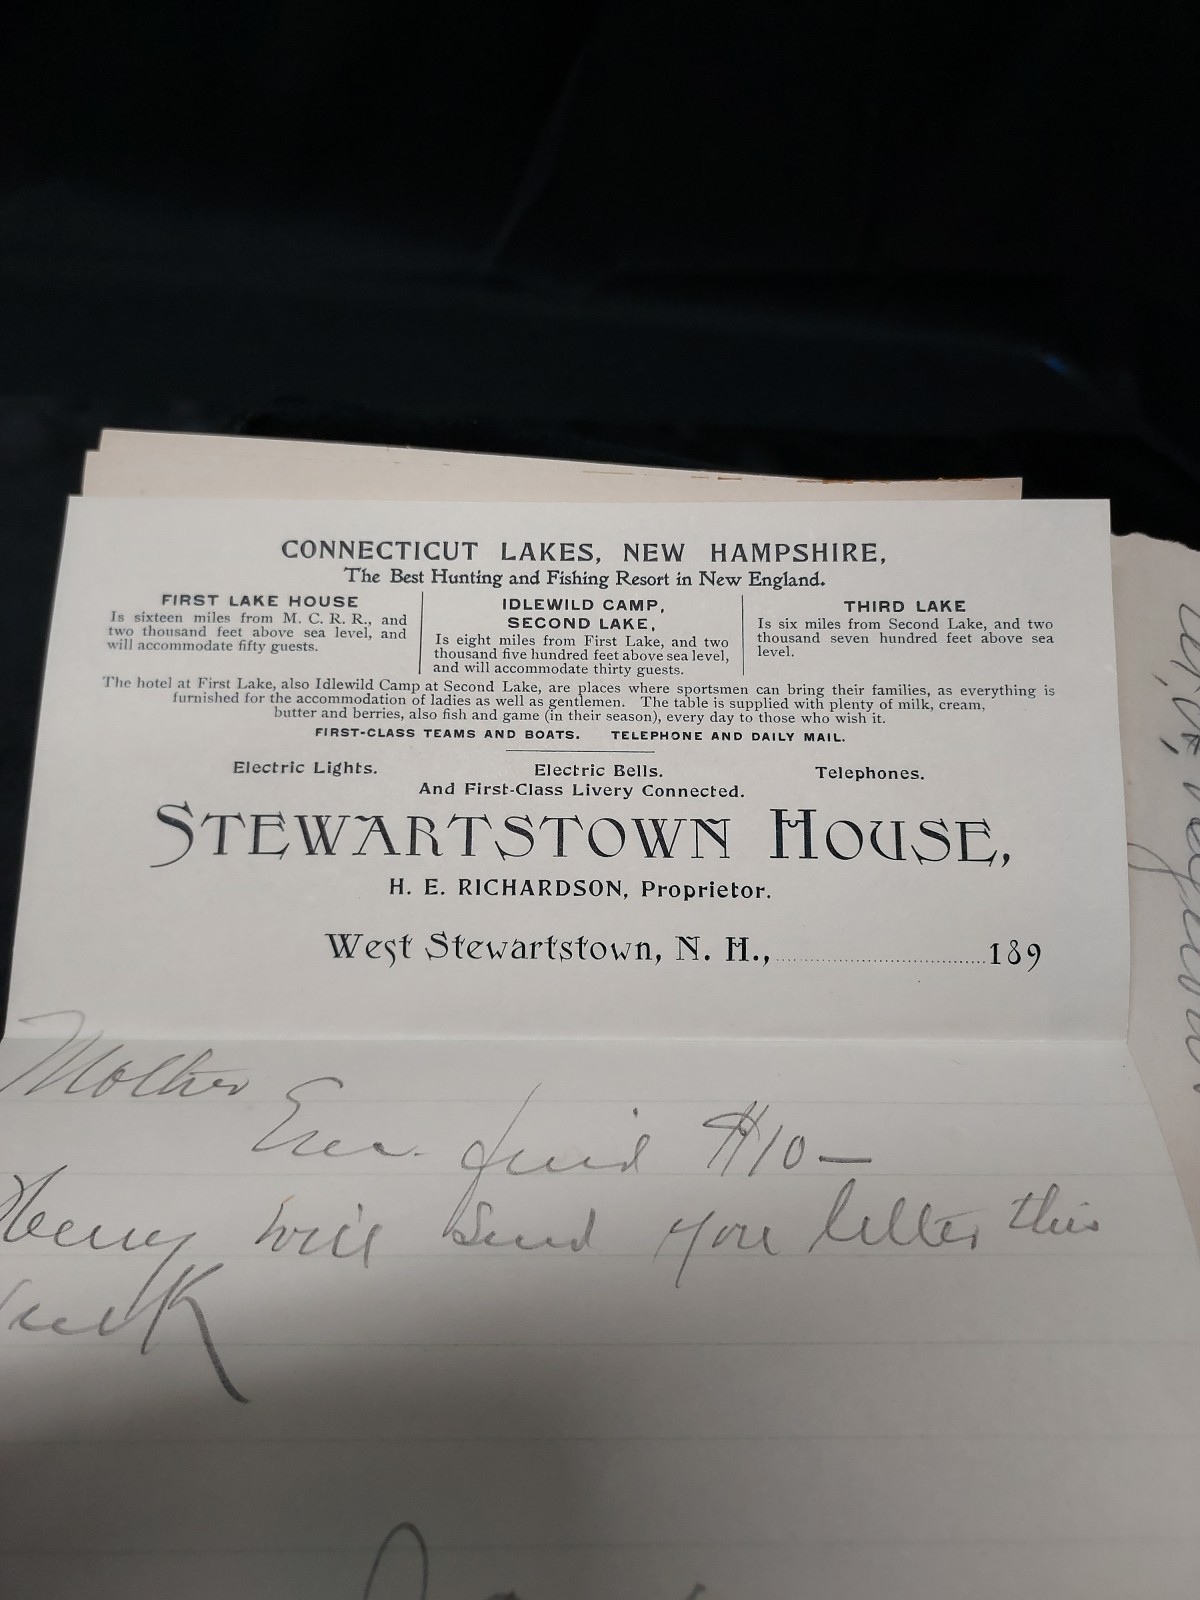 CONNECTICUT LAKES, NEW HAMPSHIRE,
The Best Hunting and Fishing Resort in New England.
FIRST LAKE HOUSE
Is sixteen miles from M. C. R. R., and
two thousand feet above sea level, and
will accommodate fifty guests.
IDLEWILD CAMP,
SECOND LAKE,
Is eight miles from First Lake, and two
thousand five hundred feet above sea level,
and will accommodate thirty guests.
THIRD LAKE
Is six miles from Second Lake, and two
thousand seven hundred feet above sea
level.
The hotel at First Lake, also Idlewild Camp at Second Lake, are places where sportsmen can bring their families, as everything is
furnished for the accommodation of ladies as well as gentlemen. The table is supplied with plenty of milk, cream,
butter and berries, also fish and game (in their season), every day to those who wish it.
FIRST-CLASS TEAMS AND BOATS. TELEPHONE AND DAILY MAIL.
Electric Lights. Electric Bells. Telephones.
And First-Class Livery Connected.
STEWARTSTOWN HOUSE,
H. E. RICHARDSON, Proprietor.
West Stewartstown, N. H., 189
Mother
$10—
Henry will send you letter this
week